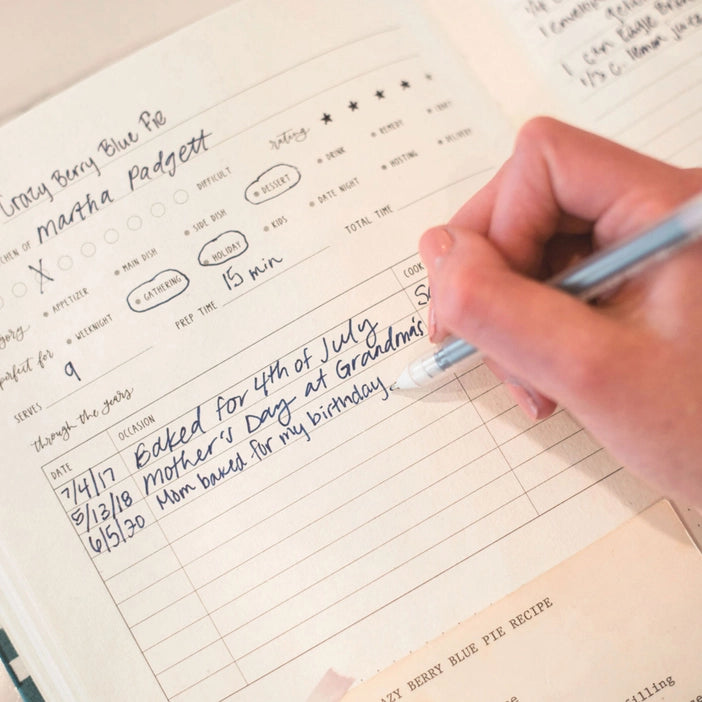 Crazy Berry Blue Pie
rating
CHEN OF Martha Padgett
DIFFICULT
APPETIZER MAIN DISH SIDE DISH DESSERT DRINK REMEDY
WEEKNIGHT GATHERING HOLIDAY KIDS DATE NIGHT HOSTING DELIVERY
SERVES 9 PREP TIME 15 min TOTAL TIME
through the years
DATE OCCASION COOK
7/4/17 Baked for 4th of July
5/13/18 Mother's Day at Grandma's
6/5/20 Mom baked for my birthday
1 can Eagle Brand
1/3 c. lemon juice
AZY BERRY BLUE PIE RECIPE
illing